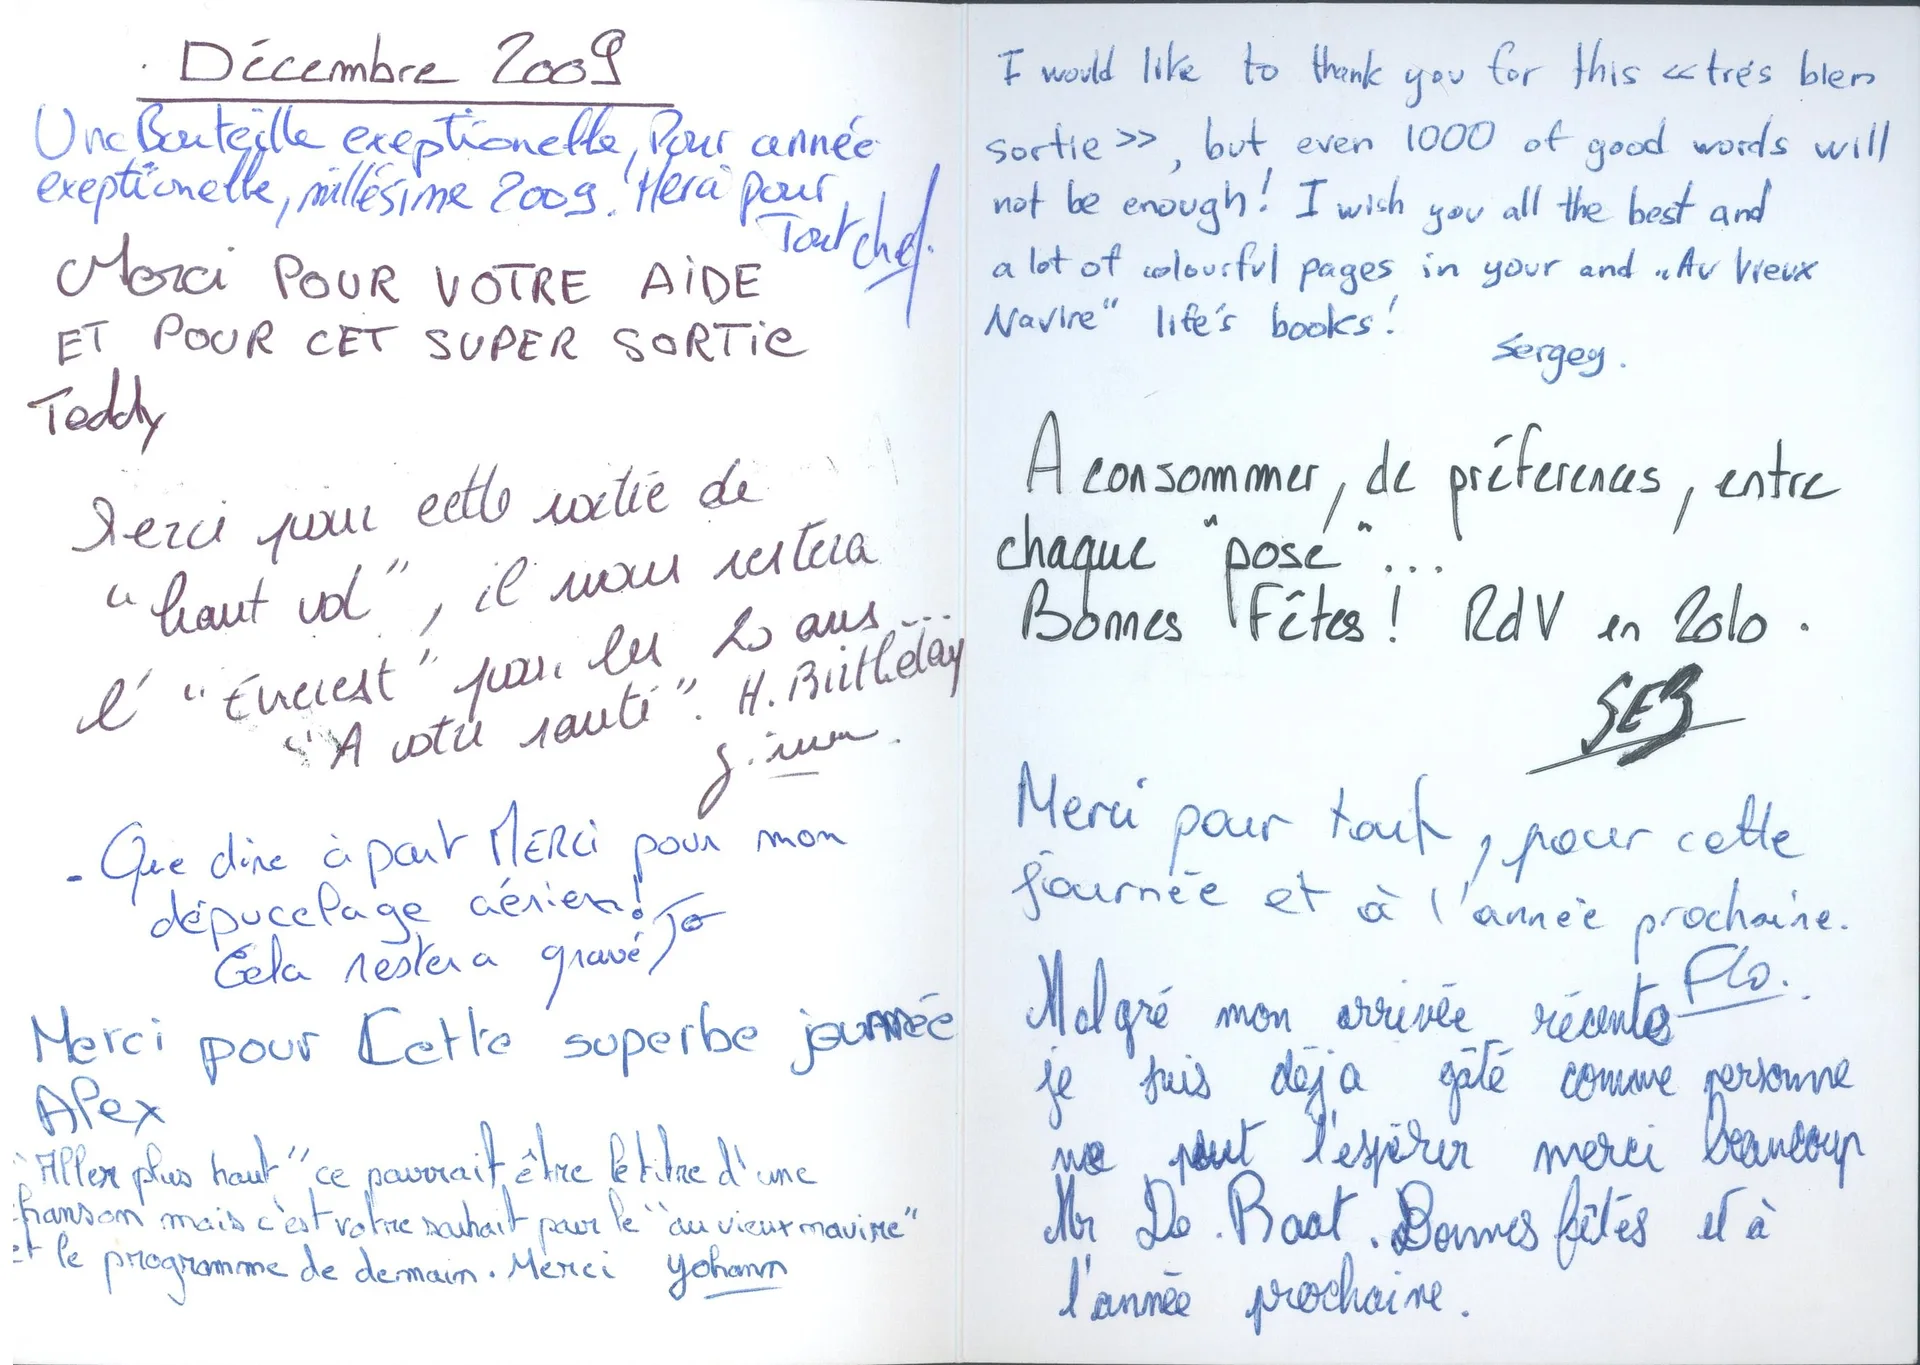 Décembre 2009
Une Bouteille exeptionelle, Pour année
exeptionelle, millésime 2009. Merci pour
Tout chef.
Merci POUR VOTRE AIDE
ET POUR CET SUPER SORTIE
Teddy
Merci pour cette sortie de
"haut vol", il nous restera
l' "Everest" pour les 20 ans...
"A votre santé". H. Birthday
- Que dire à part MERCI pour mon
dépucelage aérien!
Cela restera gravé Jo
Merci pour Cette superbe journée
Alex
"Aller plus haut" ce pourrait être le titre d'une
chanson mais c'est votre souhait pour le "au vieux navire"
et le programme de demain. Merci Yohann
I would like to thank you for this «trés bien
sortie», but even 1000 of good words will
not be enough! I wish you all the best and
a lot of colourful pages in your and „Au Vieux
Navire" life's books!
Sergey.
A consommer, de préferences, entre
chaque "pose"...
Bonnes Fêtes! RdV en 2010.
SEB
Merci pour tout, pour cette
journée et à l'année prochaine.
Flo.
Malgré mon arrivée récente
je suis déja gâté comme personne
ne peut l'espérer merci beaucoup
Mr De.Baat. Bonnes fêtes et à
l'année prochaine.